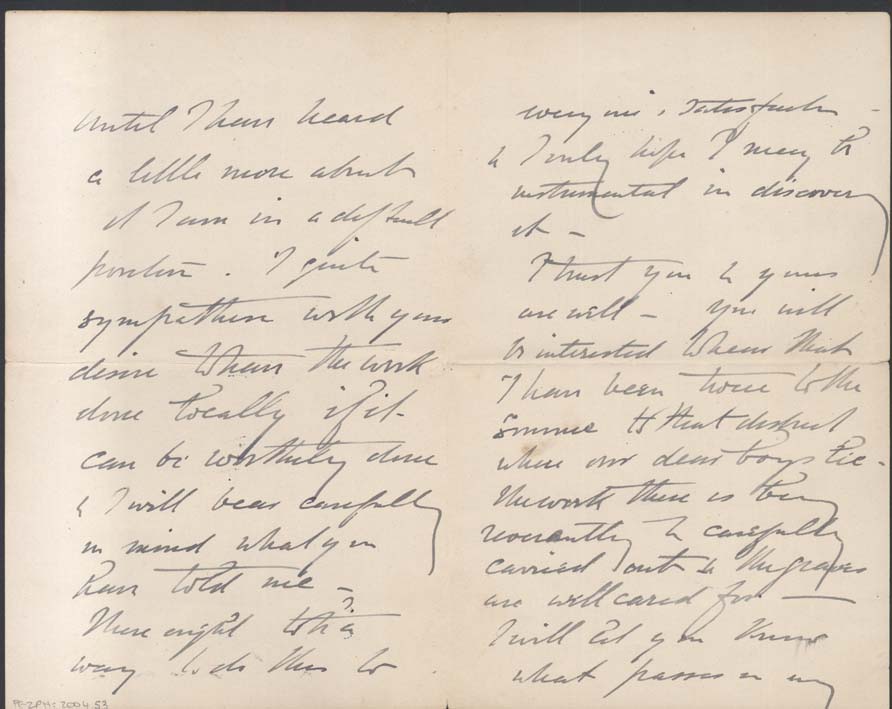 until I have heard
a little more about
it I am in a difficult
position. I quite
sympathise with your
desire to have the work
done locally if it
can be worthily done
& I will bear carefully
in mind what you
have told me –
There ought to be a
way to do this to
everyone's satisfaction –
& I only hope I may be
instrumental in discovering
it –
I trust you & yours
are well – you will
be interested to hear that
I have been twice to the
Somme to that district
where our dear boys lie –
The work there is being
reverently & carefully
carried out & the graves
are well cared for –
I will let you know
what passes in my
PE-ZPH: 2004.53